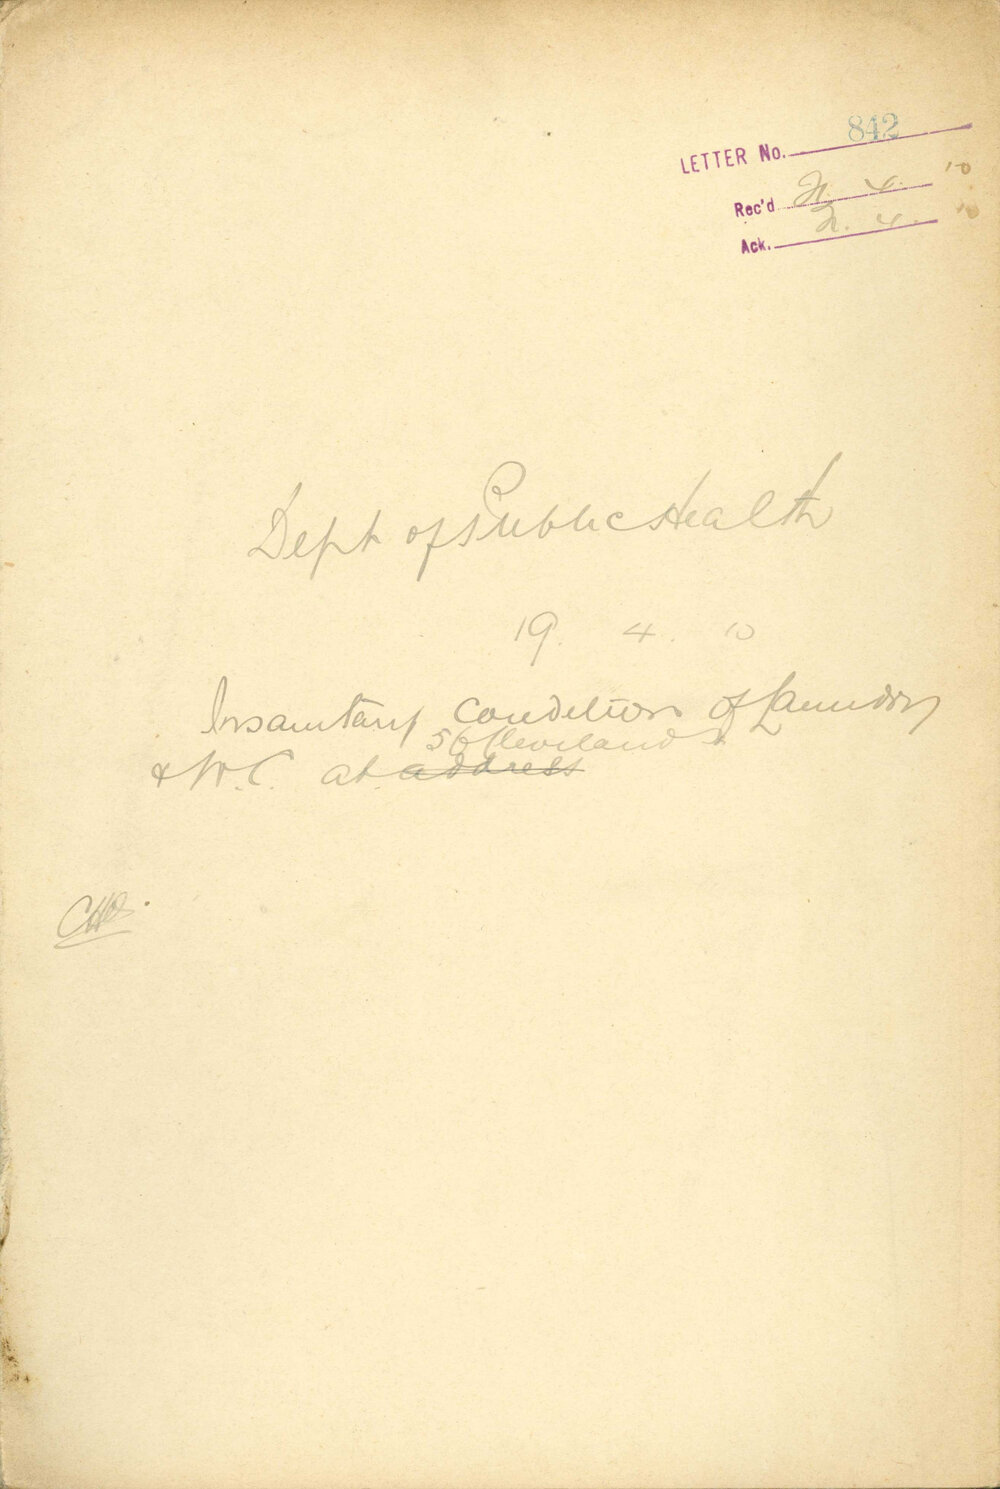 842
LETTER No.
Rec'd 21. 4. 10
Ack. 21. 4. 10
Dept of Public Health
19. 4. 10
Insanitary Condition of Laundry
56 Cleveland St
& W.C. at address